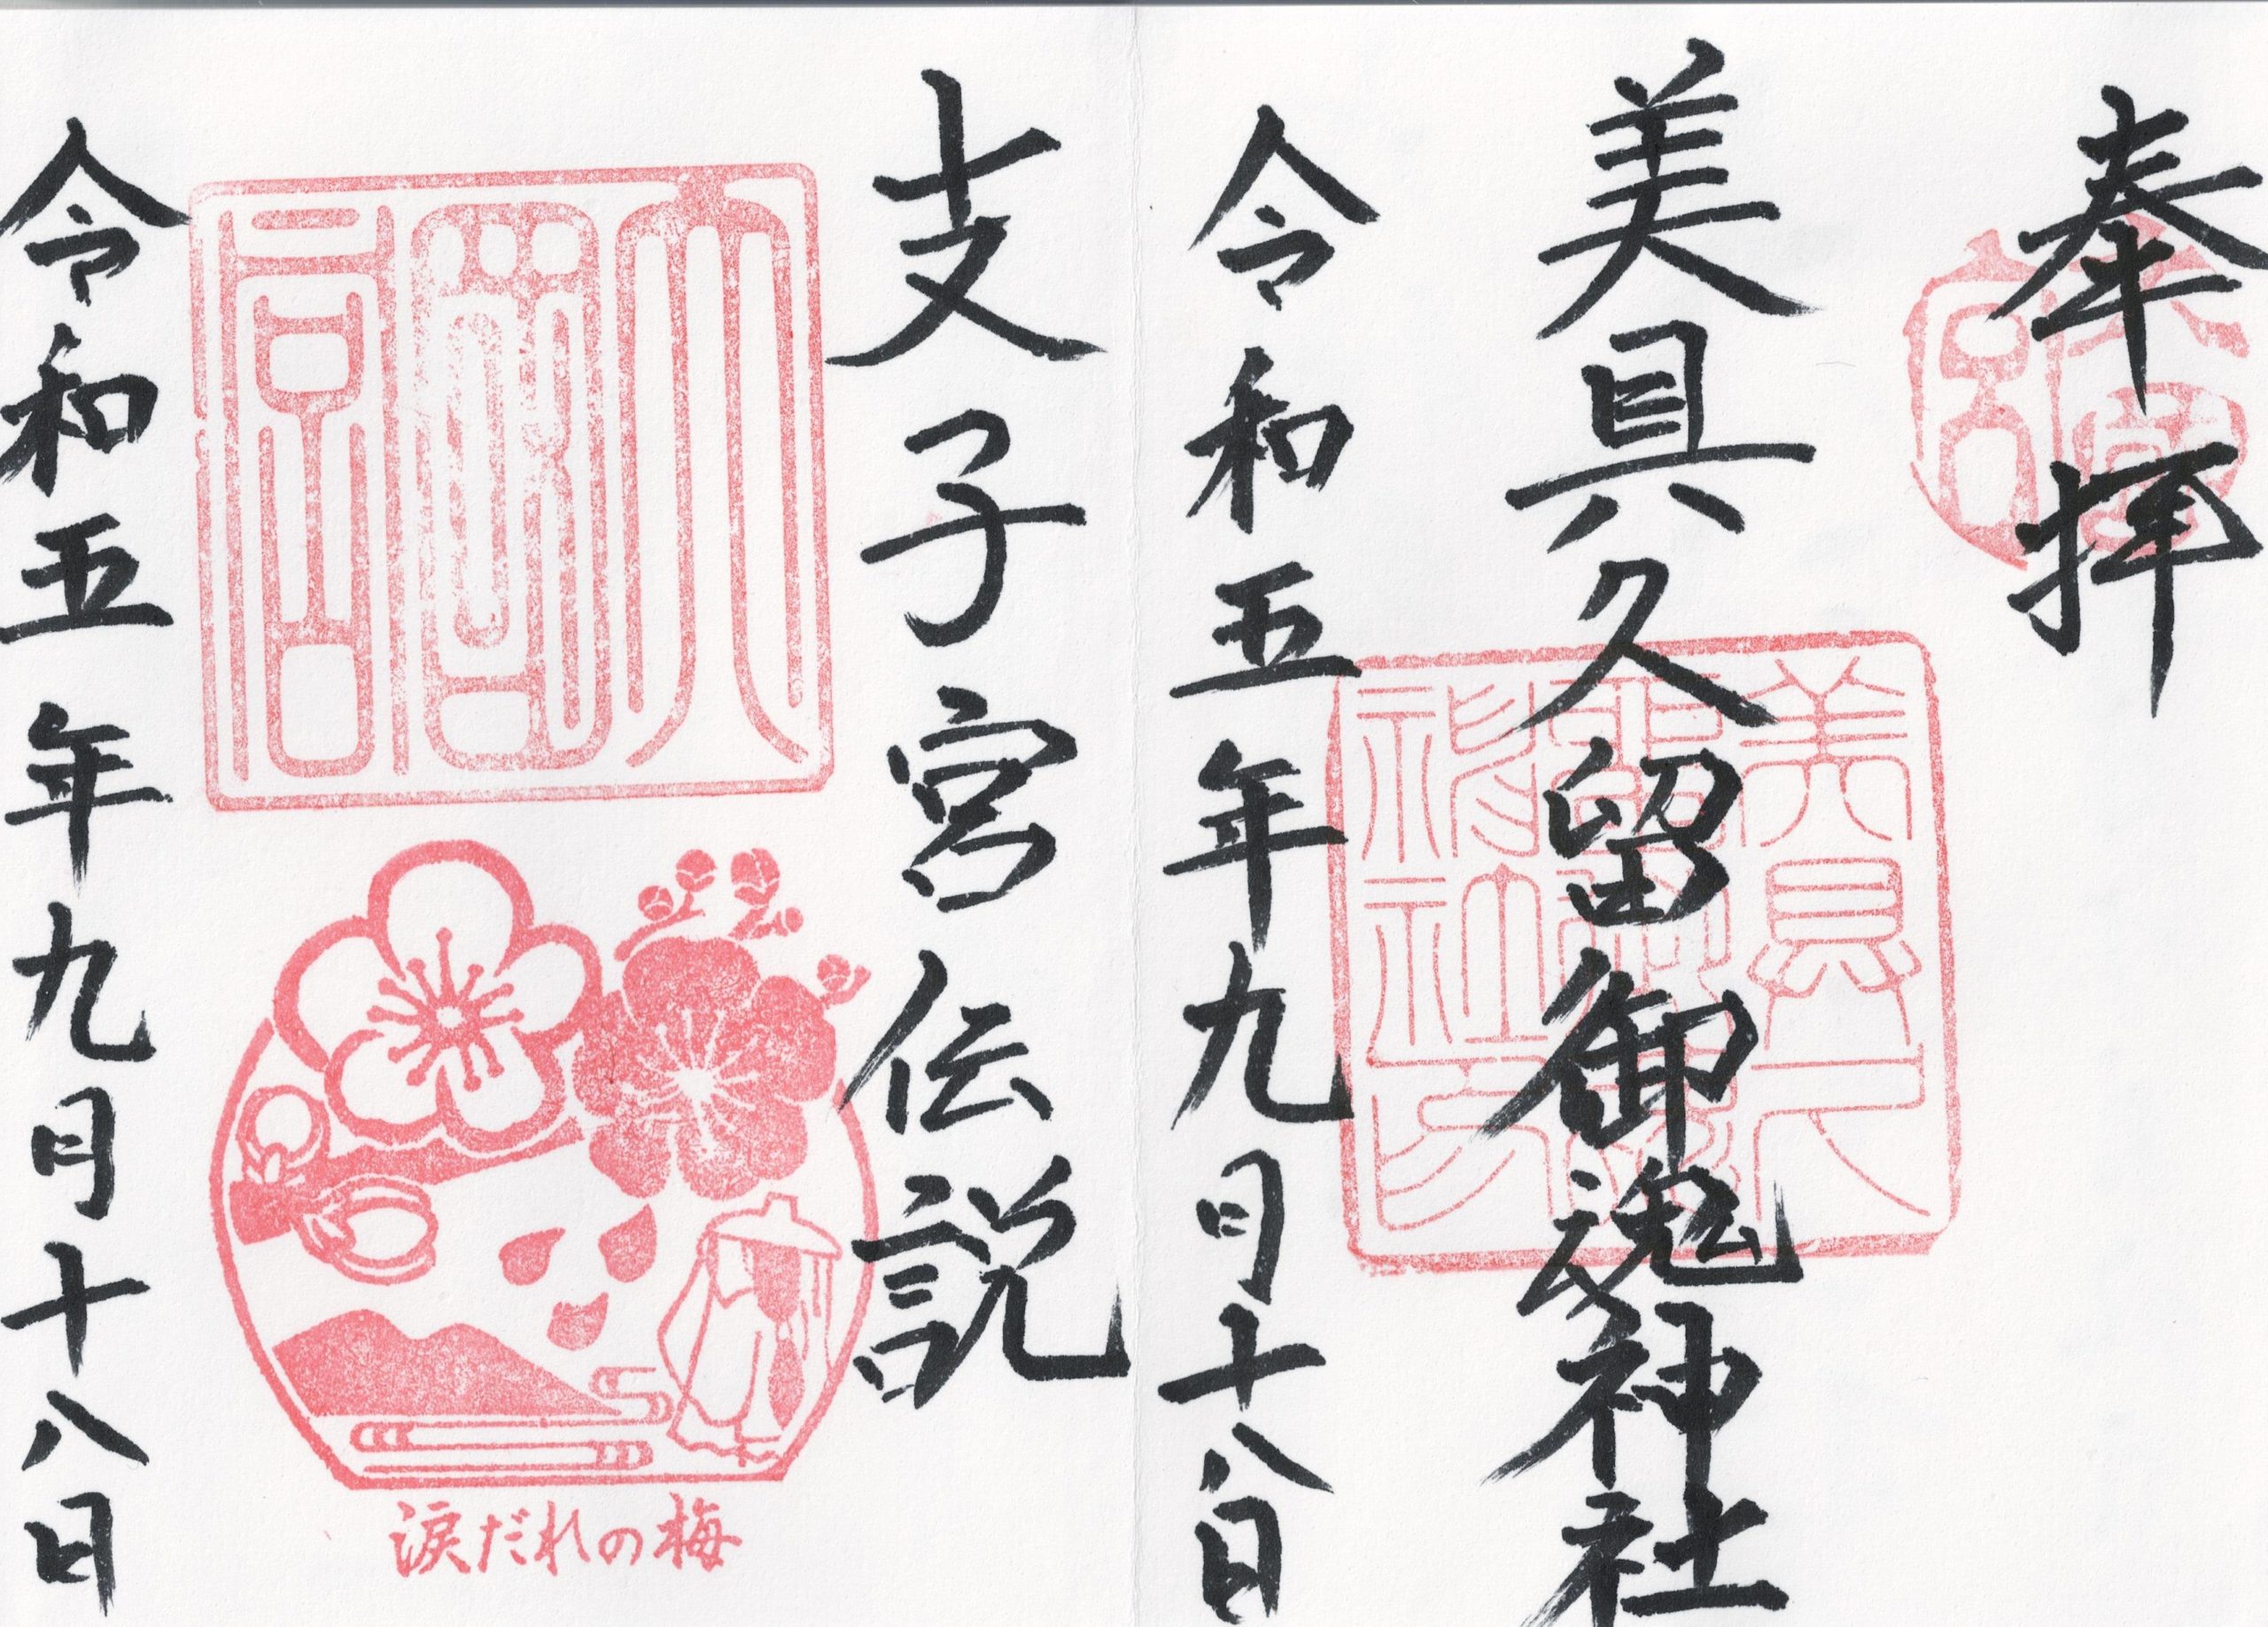 奉拝
美具久留御魂神社
令和五年九月十八日
支子宮伝説
令和五年九月十八日
涙だれの梅